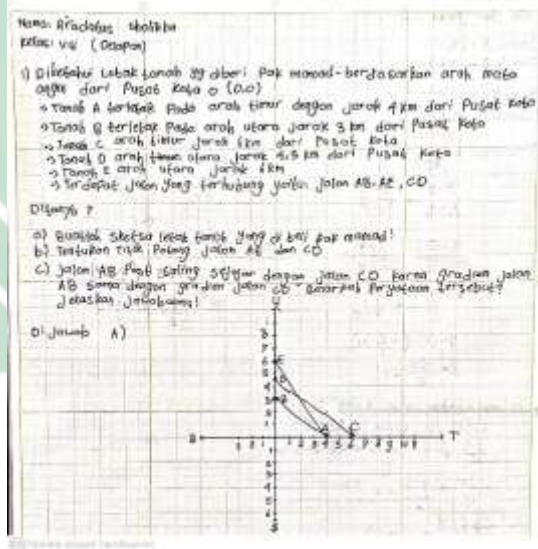 Nama: Riadatus Sholikha
Kelas: VIII (Delapan)
1) Diketahui Letak tanah yg diberi Pak mamad berdasarkan arah mata
angin dari Pusat Kota O (0,0)
→ Tanah A terletak Pada arah timur dengan jarak 4 km dari Pusat Kota
→ Tanah B terletak Pada arah utara jarak 3 km dari Pusat Kota
→ Tanah C arah timur jarak 6 km dari Pusat Kota
→ Tanah D arah utara jarak 4.5 km dari Pusat Kota
→ Tanah E arah utara jarak 6 km
→ Terdapat jalan yang terhubung yaitu jalan AB, AE, CD
Ditanya ?
a) Buatlah Sketsa letak tanah yang di beri pak mamad!
b) Tentukan titik Potong jalan AE dan CD
c) jalan AB Pasti saling sejajar dengan jalan CD karna gradien jalan
AB sama dengan gradien jalan CD benarkah Pernyataan tersebut?
jelaskan jawabanmu!
Di jawab A)
U
8
7
6 E
5 D
4
3 B
2
1
B 3 2 1 1 2 3 4 5 6 7 8 9 10 11 T
A C
1
2
3
4
5
6
S